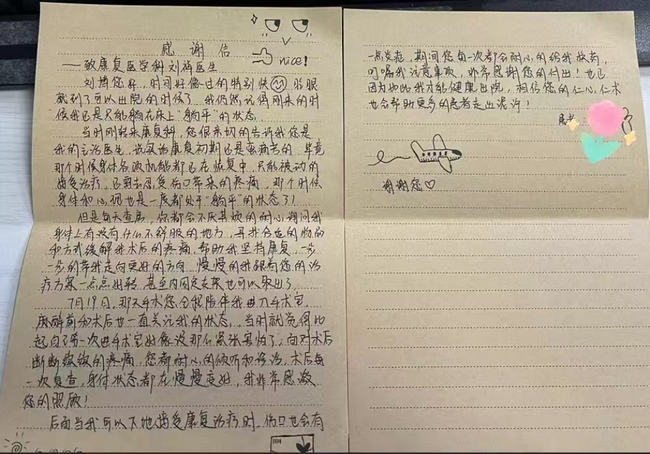 感谢信
nice!
——致康复医学科刘祥医生
刘博您好，时间好像过的特别快 转眼
就到了可以出院的时候了，我仍然记得刚来的时
候我还是只能躺在床上"躺平"的状态
当时刚转来康复科，您很亲切的告诉我您是
我的主治医生，说实话康复初期还是蛮痛苦的，毕竟
那个时候身体各项机能都还在恢复中，只能被动的
接受治疗，还要去忍受伤口带来的疼痛，那个时候
身体和心理也是一度都处于"躺平"的状态了！
但是每天查房，你都会不厌其烦的耐心询问我
身体上有没有什么不舒服的地方，寻找合适的物药
和方式缓解我术后的疼痛，帮助我坚持康复，一步
一步的带我走向更好的方向，慢慢的我跟着您的治
疗方案一点点好转，甚至内固定支架也可以取出了。
7月19日，那天手术您全程陪伴我进入手术室，
麻醉前和术后也一直关注我的状态，当时就觉得比
起自己第一次进手术室好像没那么紧张害怕了，面对术后
断断续续的疼痛，您都耐心的倾听和诊治，术后每
一次复查，身体状态都在慢慢变好，我非常感激
您的照顾！
后面当我可以下地接受康复治疗时，伤口也会有
一点发炎，期间您每一次都会耐心的给我换药，
叮嘱我注意事项，非常感谢您的付出！也正
因为如此我才能健康出院，相信您的仁心仁术
也会帮助更多的患者走出混沌！
谢谢您♡